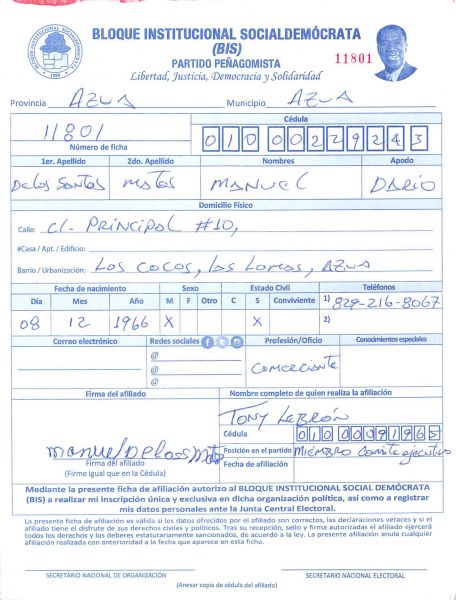 BLOQUE INSTITUCIONAL SOCIALDEMÓCRATA
(BIS)
PARTIDO PEÑAGOMISTA
Libertad, Justicia, Democracia y Solidaridad
11801
Provincia AZUA Municipio AZUA
11801
Número de ficha
Cédula
01000229243
1er. Apellido 2do. Apellido Nombres Apodo
De los Santos Matos MANUEL DARIO
Domicilio Físico
Calle: C/- PRINCIPAL #10,
#Casa / Apt. / Edificio:
Barrio / Urbanización: Los COCOS, Las Lomas, AZUA
Fecha de nacimiento Sexo Estado Civil Teléfonos
Día Mes Año M F Otro C S Conviviente 1) 829-216-8067
08 12 1966 X X 2)
Correo electrónico Redes sociales Profesión/Oficio Conocimientos especiales
@
@
@
Comerciante
Firma del afiliado Nombre completo de quien realiza la afiliación
Tony LeBRÓN
Cédula 01000081865
Manuel De los S Matos
Posición en el partido MIEMBRO Comite ejecutivo
Firma del afiliado
(Firme igual que en la Cédula)
Fecha de afiliación
Mediante la presente ficha de afiliación autorizo al BLOQUE INSTITUCIONAL SOCIAL DEMÓCRATA
(BIS) a realizar mi inscripción única y exclusiva en dicha organización política, así como a registrar
mis datos personales ante la Junta Central Electoral.
La presente ficha de afiliación es válida si los datos ofrecidos por el afiliado son correctos, las declaraciones veraces y si el
afiliado tiene el disfrute de sus derechos civiles y políticos. Tras su recepción, sello y firma autorizadas el afiliado ejercerá
todos los derechos y los deberes estatutariamente sancionados, de acuerdo a la ley. La presente afiliación anula cualquier
afiliación realizada con anterioridad a la fecha que aparece en esta ficha.
SECRETARIO NACIONAL DE ORGANIZACIÓN SECRETARIO NACIONAL ELECTORAL
(Anexar copia de cédula del afiliado)